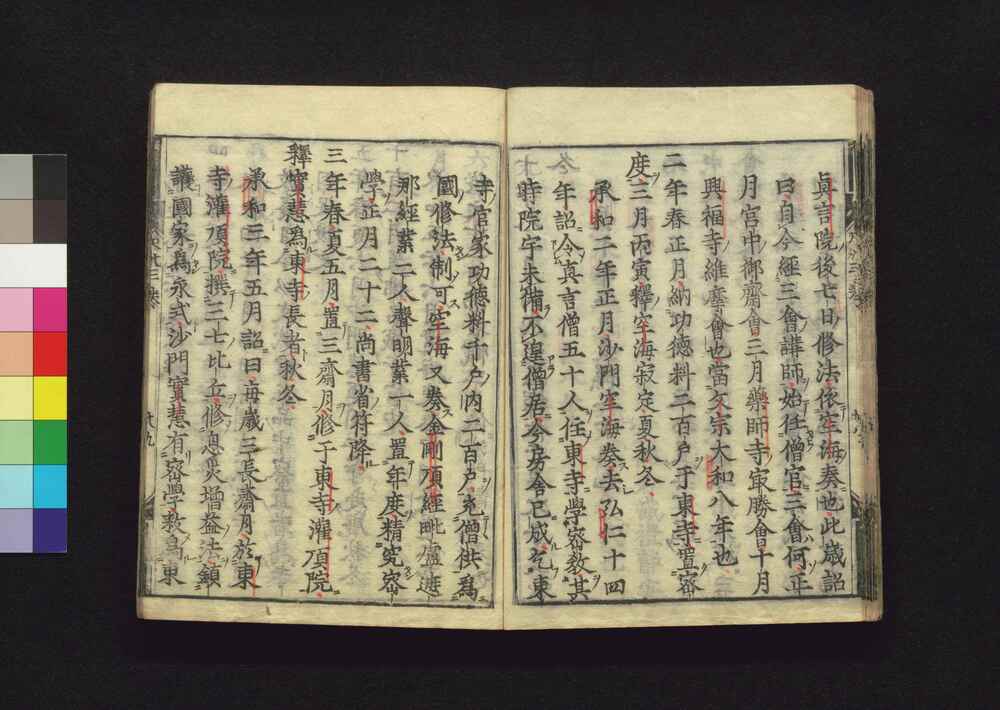 眞言院後七日修法依空海奏也此歳詔
曰自今經三會講師始任僧官三會何正
月宮中御齋會三月藥師寺㝡勝會十月
興福寺維摩會也當文宗大和八年也
二年春正月納功德料二百户于東寺置密
度三月丙寅釋空海寂定夏秋冬
承和二年正月沙門空海奏去弘仁十四
年詔令真言僧五十人住東寺學密教其
時院宇未備不遑僧居今房舍已成乞東
寺官家功德料千户内二百户充僧供爲
國修法制可空海又奏金剛頂經毗盧遮
那經業二人聲明業一人置年度精究密
學正月二十二尚書省符降
三年春夏五月置三齋月修于東寺灌頂院
釋實慧爲東寺長者秋冬
承和三年五月詔曰每歳三長齋月於東
寺灌頂院撰三七比丘修息災增益法鎮
護國家爲永式沙門實慧有密學敕爲東